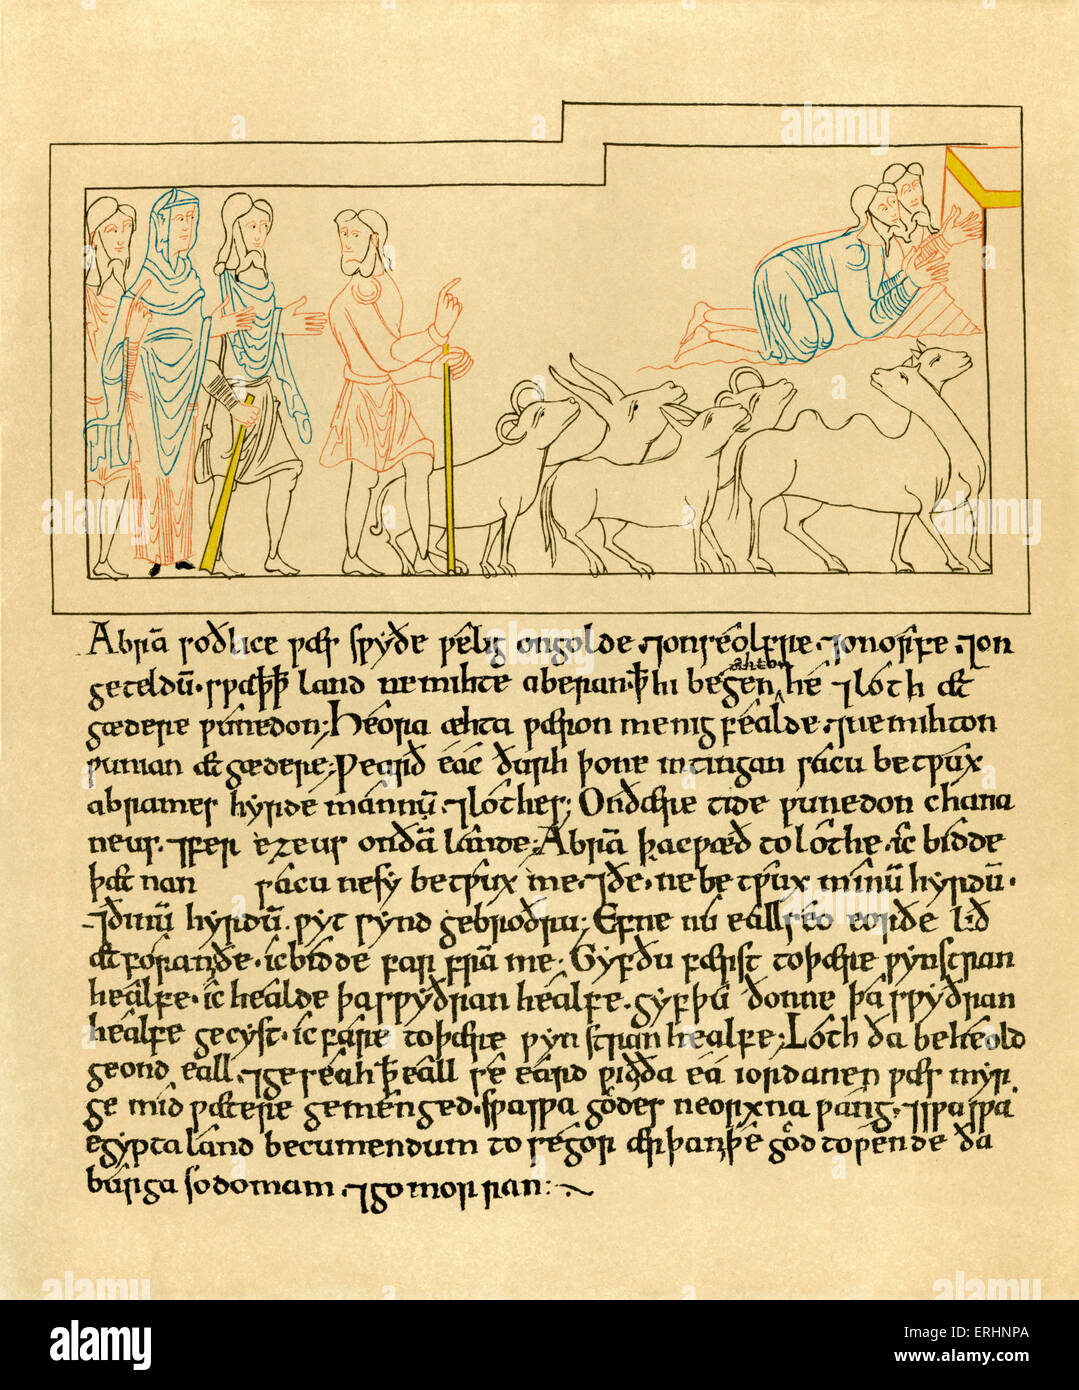 Abrā soðlice wæs swyðe welig on golde ⁊ on seolfre ⁊ on orfe ⁊ on
geteldū · swa ꝥ ꝥ land ne mihte aberan · ꝥ hi begen ahton he ⁊ loth æt
gædere wunedon; Heora æhta wæron menigfealde ⁊ ne mihton
wunian æt gædere; Wearð eac ðurh þone intingan sacu betwux
abrames hyrde mannū ⁊ lothes; On ðære tide wunedon chana
neus ⁊ ferezeus on ðā lande; Abrā þa cwæð to lothe · ic bidde
þæt nan sacu ne sy betwux me ⁊ ðe · ne betwux minū hyrdū ·
⁊ ðinū hyrdū · wyt synd gebroðru; Efne nu eall seo eorðe lið
æt foran ðe · ic bidde far frā me · Gyf ðu færst to þære wynstran
healfe · ic healde þa swyðran healfe · gyf þu ðonne þa swyðran
healfe gecyst · ic fare to þære wynstran healfe; Loth ða beheold
geond eall ⁊ geseah ꝥ eall se eard wið ða ea iordanen wæs myri
ge mid wætere gemenged · swa swa godes neorxna wang ⁊ swa swa
egypta land becumendum to segor ær þan þe god towende ða
burga sodomam ⁊ gomorran:
alamy
a
ERHNPA
www.alamy.com